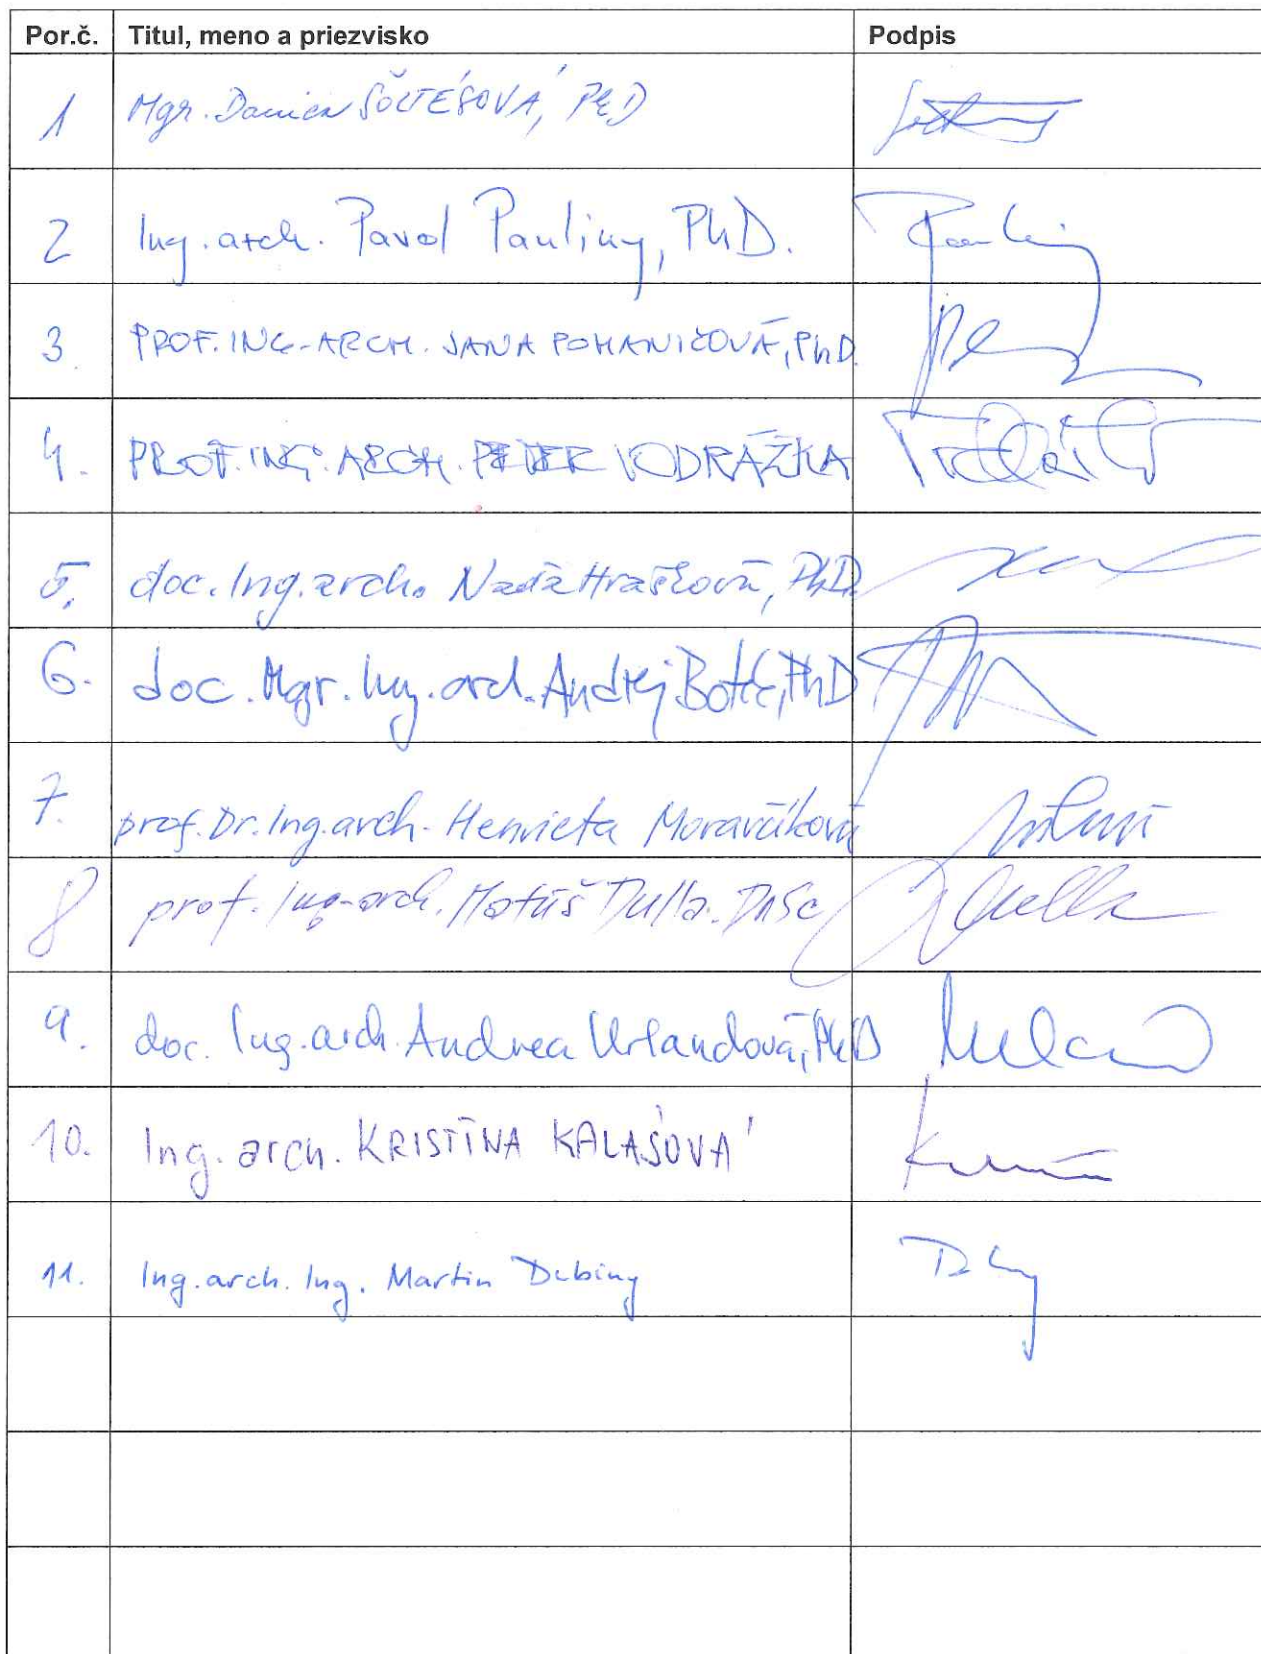 Por.č. Titul, meno a priezvisko Podpis
1 Mgr. Danica ŠOLTÉSOVÁ, PhD
2 Ing. arch. Pavol Pauliny, PhD.
3. PROF. ING. ARCH. JANA POHANIČOVÁ, PhD.
4. PROF. ING. ARCH. PETER VODRÁŽKA
5. doc. Ing. arch. Naďa Hrašková, PhD.
6. doc. Mgr. Ing. arch. Andrej Botek, PhD
7. prof. Dr. Ing. arch. Henrieta Moravčíková
8 prof. Ing. arch. Matúš Dulla. DrSc
9. doc. Ing. arch. Andrea Urlandová, PhD
10. Ing. arch. KRISTÍNA KALAŠOVÁ
11. Ing. arch. Ing. Martin Dubiny